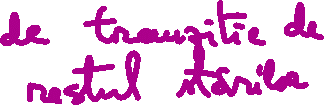 de tranzitie de
restul stărilor